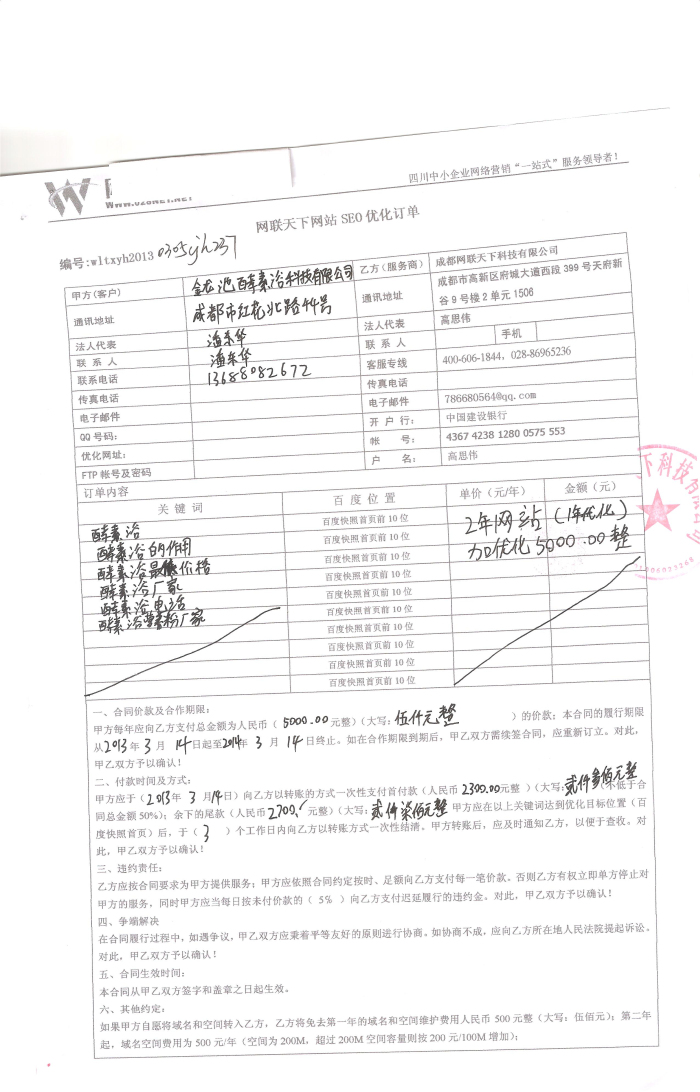 四川中小企业网络营销“一站式”服务领导者！
WWW.028NET.NET
网联天下网站 SEO 优化订单
编号:wltxyh20130305yjh237
甲方(客户) 金龙池酵素浴科技有限公司 乙方（服务商） 成都网联天下科技有限公司
通讯地址 成都市红花北路44号 通讯地址 成都市高新区府城大道西段 399 号天府新谷 9 号楼 2 单元 1506
法人代表 潘东华 法人代表 高思伟
联 系 人 潘东华 联 系 人 手机
联系电话 13688082672 客服专线 400-606-1844，028-86965236
传真电话 传真电话
电子邮件 电子邮件 786680564@qq.com
QQ 号码: 开 户 行: 中国建设银行
优化网址: 帐 号: 4367 4238 1280 0575 553
FTP 帐号及密码 户 名: 高思伟
订单内容
关 键 词 百 度 位 置 单价（元/年） 金额（元）
酵素浴 百度快照首页前 10 位 2年网站（1年优化）
酵素浴的作用 百度快照首页前 10 位 加优化5000.00整
酵素浴价格 百度快照首页前 10 位
酵素浴厂家 百度快照首页前 10 位
酵素浴电话 百度快照首页前 10 位
酵素浴粉厂家 百度快照首页前 10 位
百度快照首页前 10 位
百度快照首页前 10 位
百度快照首页前 10 位
百度快照首页前 10 位
一、合同价款及合作期限:
甲方每年应向乙方支付总金额为人民币（ 5000.00元整）（大写: 伍仟元整 ）的价款；本合同的履行期限
从2013年 3月 14日起至2014年 3 月 14日终止。如在合作期限到期后，甲乙双方需续签合同，应重新订立。对此，
甲乙双方予以确认！
二、付款时间及方式:
甲方应于（2013年 3 月14日）向乙方以转账的方式一次性支付首付款（人民币 2300.00元整）（大写: 贰仟叁佰元整）（不低于合
同总金额 50%）；余下的尾款（人民币2700.元整）（大写: 贰仟柒佰元整 甲方应在以上关键词达到优化目标位置（百
度快照首页）后，于（ 3 ）个工作日内向乙方以转账方式一次性结清。甲方转账后，应及时通知乙方，以便于查收。对
此，甲乙双方予以确认！
三、违约责任:
乙方应按合同要求为甲方提供服务；甲方应依照合同约定按时、足额向乙方支付每一笔价款。否则乙方有权立即单方停止对
甲方的服务，同时甲方应当每日按未付价款的（ 5% ）向乙方支付迟延履行的违约金。对此，甲乙双方予以确认！
四、争端解决
在合同履行过程中，如遇争议，甲乙双方应秉着平等友好的原则进行协商。如协商不成，应向乙方所在地人民法院提起诉讼。
对此，甲乙双方予以确认！
五、合同生效时间:
本合同从甲乙双方签字和盖章之日起生效。
六、其他约定:
如果甲方自愿将域名和空间转入乙方，乙方将免去第一年的域名和空间维护费用人民币 500 元整（大写: 伍佰元）；第二年
起，域名空间费用为 500 元/年（空间为 200M，超过 200M 空间容量则按 200 元/100M 增加）；